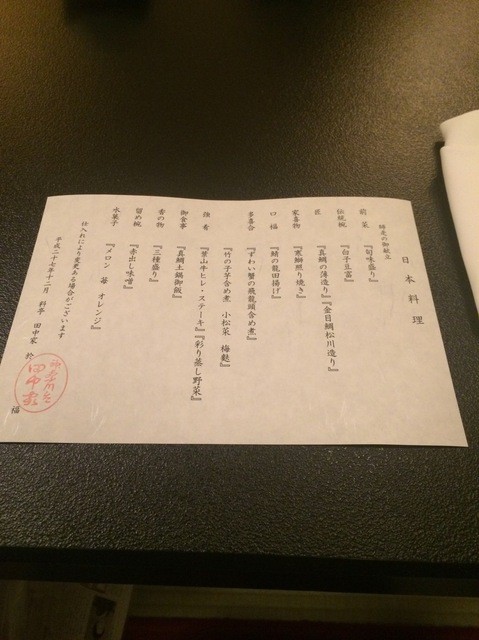 日本料理
師走の御献立
前菜 『旬味盛り』
伝統椀 『白子豆富』
匠 『真鯛の薄造り』『金目鯛松川造り』
家喜物 『寒鰤照り焼き』
口福 『鯖の龍田揚げ』
多喜合 『ずわい蟹の飛龍頭含め煮』
『竹の子芋含め煮 小松菜 梅麩』
強肴 『葉山牛ヒレ・ステーキ』『彩り蒸し野菜』
御食事 『真鯛土鍋御飯』
香の物 『三種盛り』
留め椀 『赤出し味噌』
水菓子 『メロン 苺 オレンジ』
仕入れにより変更ある場合がございます
平成二十七年十二月 料亭 田中家 於
福